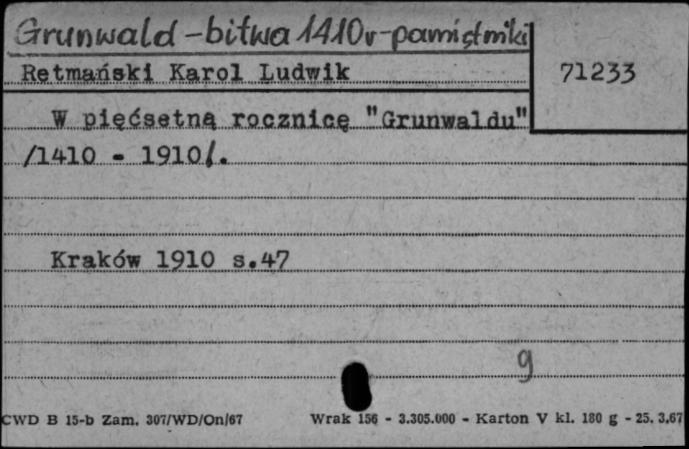 Grunwald - bitwa 1410 r - pamiętniki
Retmański Karol Ludwik
71233
W pięćsetną rocznicę "Grunwaldu"
/1410 - 1910/.
Kraków 1910 s.47
g
CWD B 15-b Zam. 307/WD/On/67 Wrak 156 - 3.305.000 - Karton V kl. 180 g - 25. 3.67